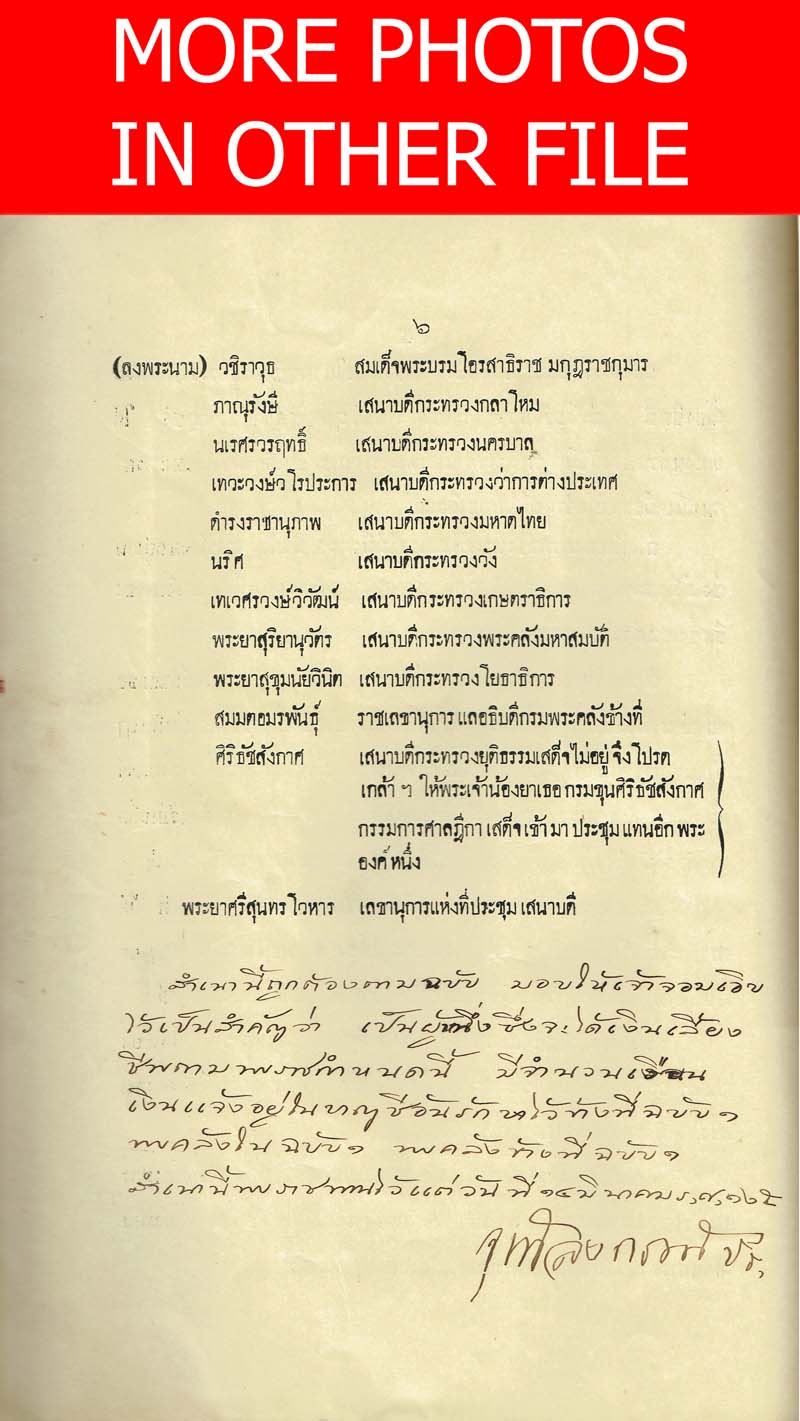 MORE PHOTOS
IN OTHER FILE
๖
(ลงพระนาม) วชิราวุธ สมเด็จพระบรมโอรสาธิราช มกุฎราชกุมาร
ภาณุรังษี เสนาบดีกระทรวงกลาโหม
นเรศรวรฤทธิ์ เสนาบดีกระทรวงนครบาล
เทวะวงษ์วโรประการ เสนาบดีกระทรวงว่าการต่างประเทศ
ดำรงราชานุภาพ เสนาบดีกระทรวงมหาดไทย
นริศ เสนาบดีกระทรวงวัง
เทเวศรวงษ์วิวัฒน์ เสนาบดีกระทรวงเกษตราธิการ
พระยาสุริยานุวัตร เสนาบดีกระทรวงพระคลังมหาสมบัติ
พระยาสุขุมนัยวินิต เสนาบดีกระทรวงโยธาธิการ
สมมตอมรพันธุ์ ราชเลขานุการ แลอธิบดีกรมพระคลังข้างที่
ศิริธัชสังกาศ เสนาบดีกระทรวงยุติธรรมเสด็จไม่อยู่ จึงโปรด
เกล้า ฯ ให้พระเจ้าน้องยาเธอ กรมขุนศิริธัชสังกาศ
กรรมการศาลฎีกา เสด็จเข้ามาประชุมแทนอีกพระ
องค์หนึ่ง
พระยาศรีสุนทรโวหาร เลขานุการแห่งที่ประชุมเสนาบดี
สำเนานี้ถูกต้องตามฉบับ มอบให้เจ้าจอมเอิบ
ไว้เป็นสำคัญว่า เป็นผู้หนึ่งซึ่งจะได้เงินเลี้ยง
ชีพตามพระราชกำหนดนี้ มีจำนวน
เงินแจ้งอยู่ในบาญชีอันรักษาไว้ทั้งที่ฉบับ ๑
พระคลังในฉบับ ๑ พระคลังข้างที่ฉบับ ๑
สำเนานี้พระราชทานไว้แต่วันที่ ๑๔ มีนาคม
จุฬาลงกรณ์ ปร.